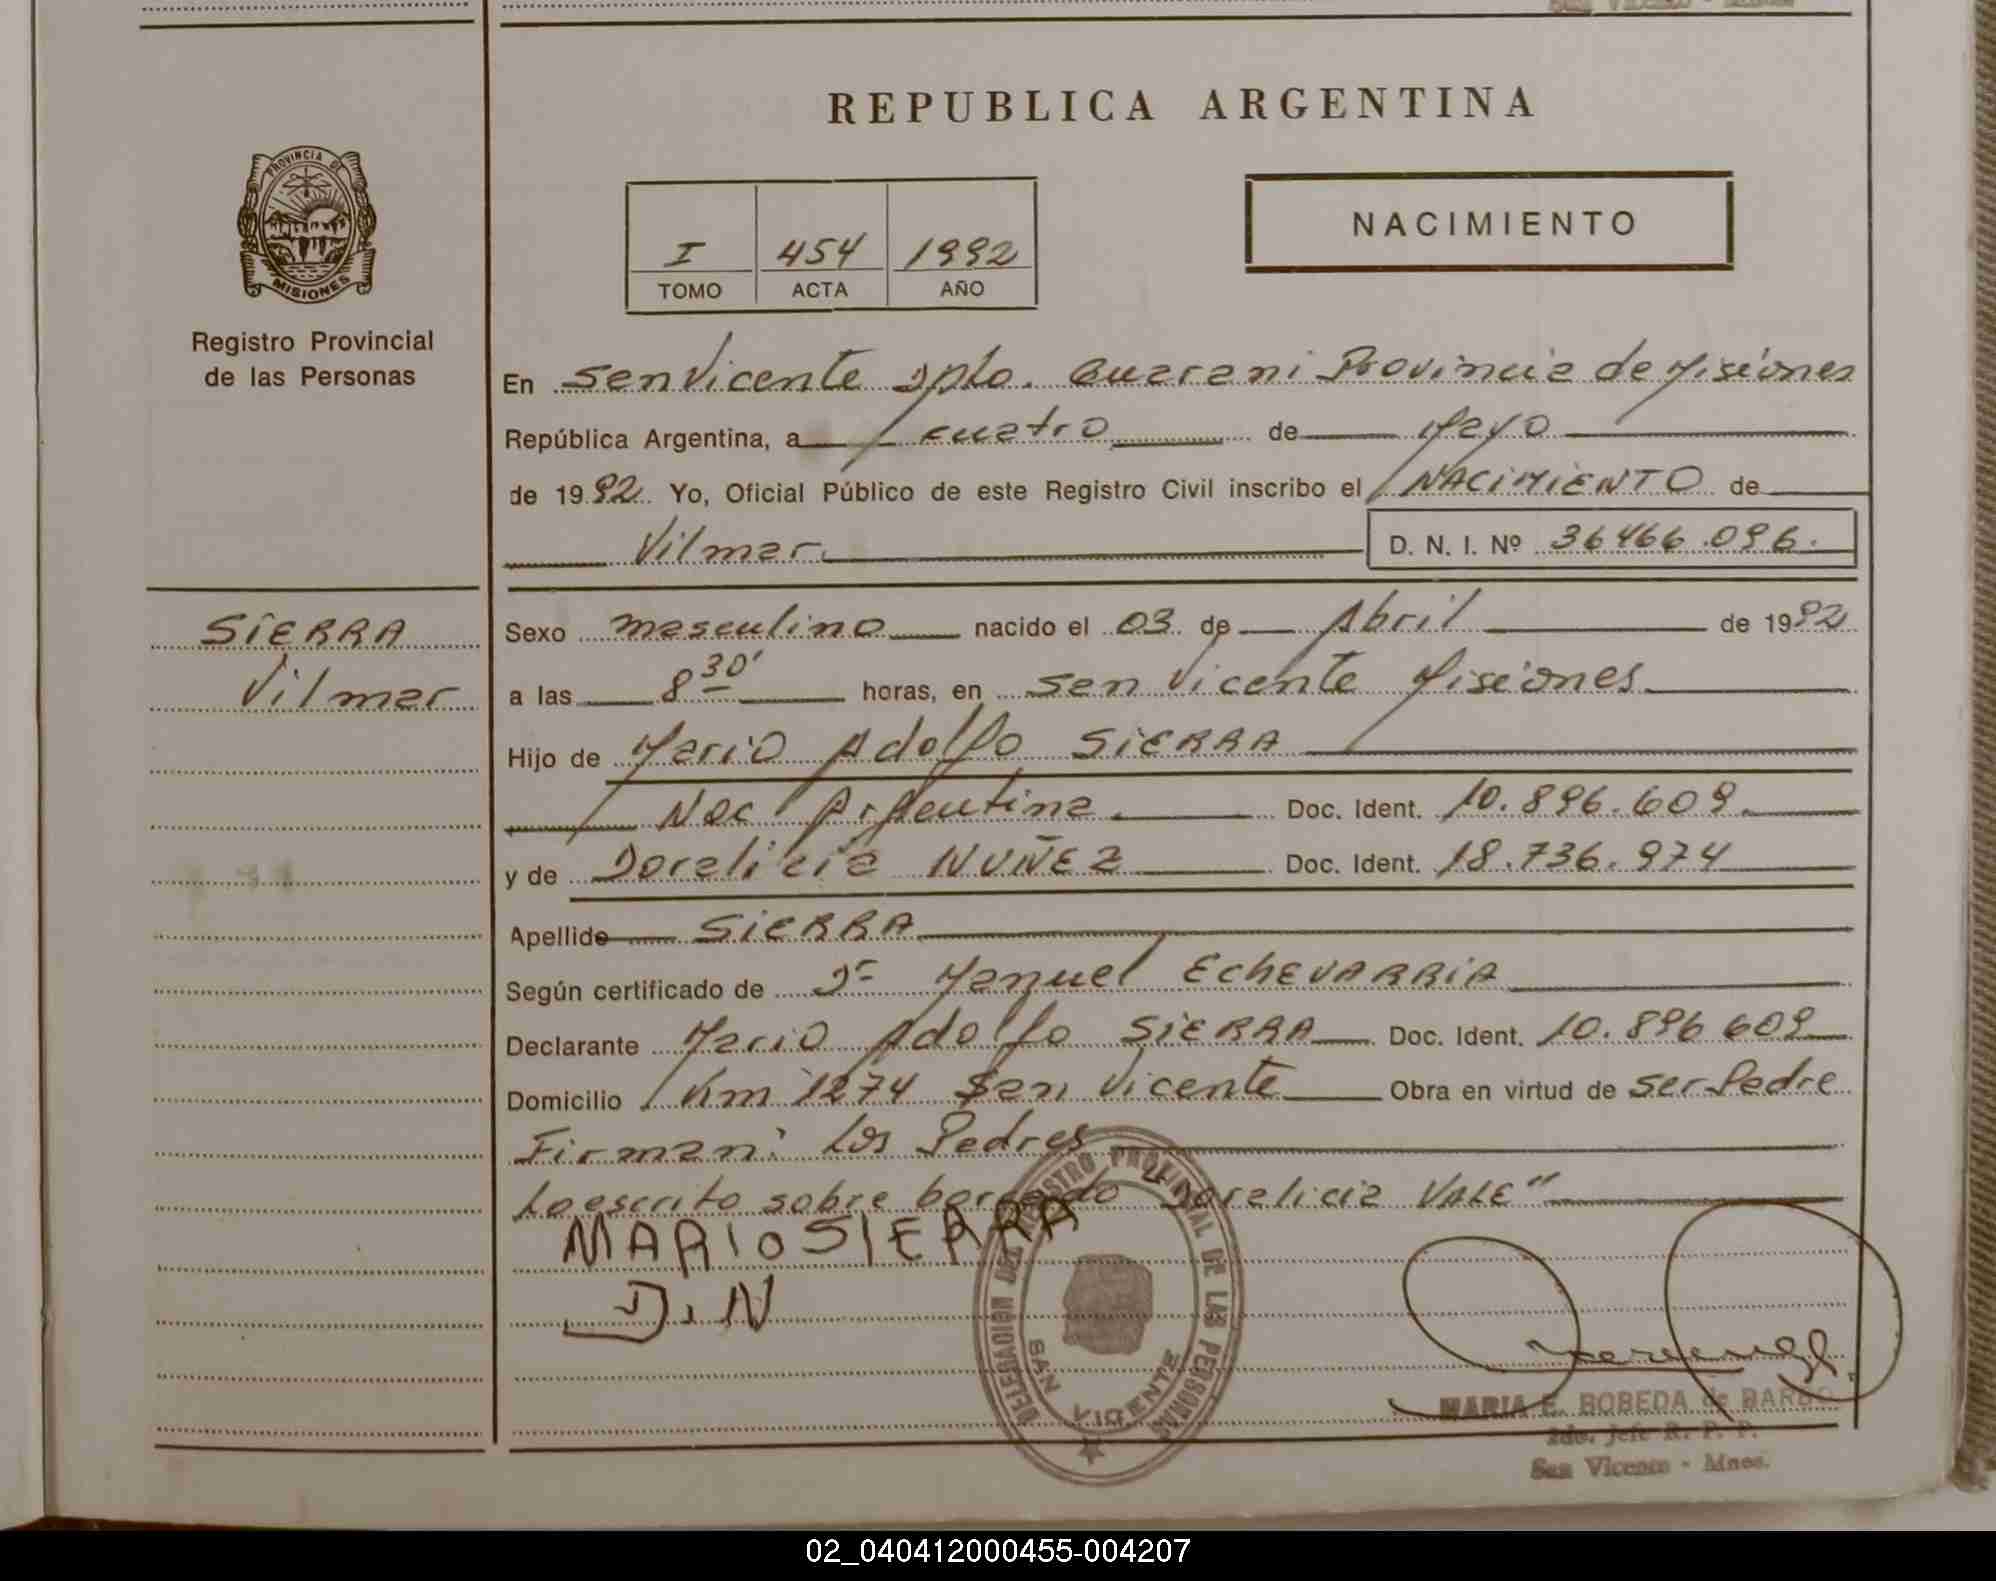 REPUBLICA ARGENTINA
PROVINCIA DE
MISIONES
Registro Provincial
de las Personas
I 454 1992
TOMO ACTA AÑO
NACIMIENTO
En San Vicente Dpto. Guarani Provincia de Misiones
República Argentina, a cuatro de Mayo
de 1992 Yo, Oficial Público de este Registro Civil inscribo el NACIMIENTO de
Vilmar. D. N. I. Nº 36466.096.
SIERRA
Vilmar
Sexo masculino nacido el 03 de Abril de 1992
a las 8 30' horas, en San Vicente Misiones
Hijo de Mario Adolfo SIERRA
Nac Argentina. Doc. Ident. 10.896.609.
y de Doralicia NUÑEZ Doc. Ident. 18.736.974
Apellido SIERRA
Según certificado de Dr Manuel ECHEVARRIA
Declarante Mario Adolfo SIERRA Doc. Ident. 10.896 609
Domicilio Km 1274 San Vicente Obra en virtud de ser Padre
Firman: Los Padres
Lo escrito sobre borrado "Doralicia VALE"
MARIO SIERRA
D.N
DELEGACION DEL REGISTRO PROVINCIAL DE LAS PERSONAS
SAN VICENTE
MARIA E. BOBEDA de BARBO
2do. Jefe R. P. P.
San Vicente - Mnes.
02_040412000455-004207